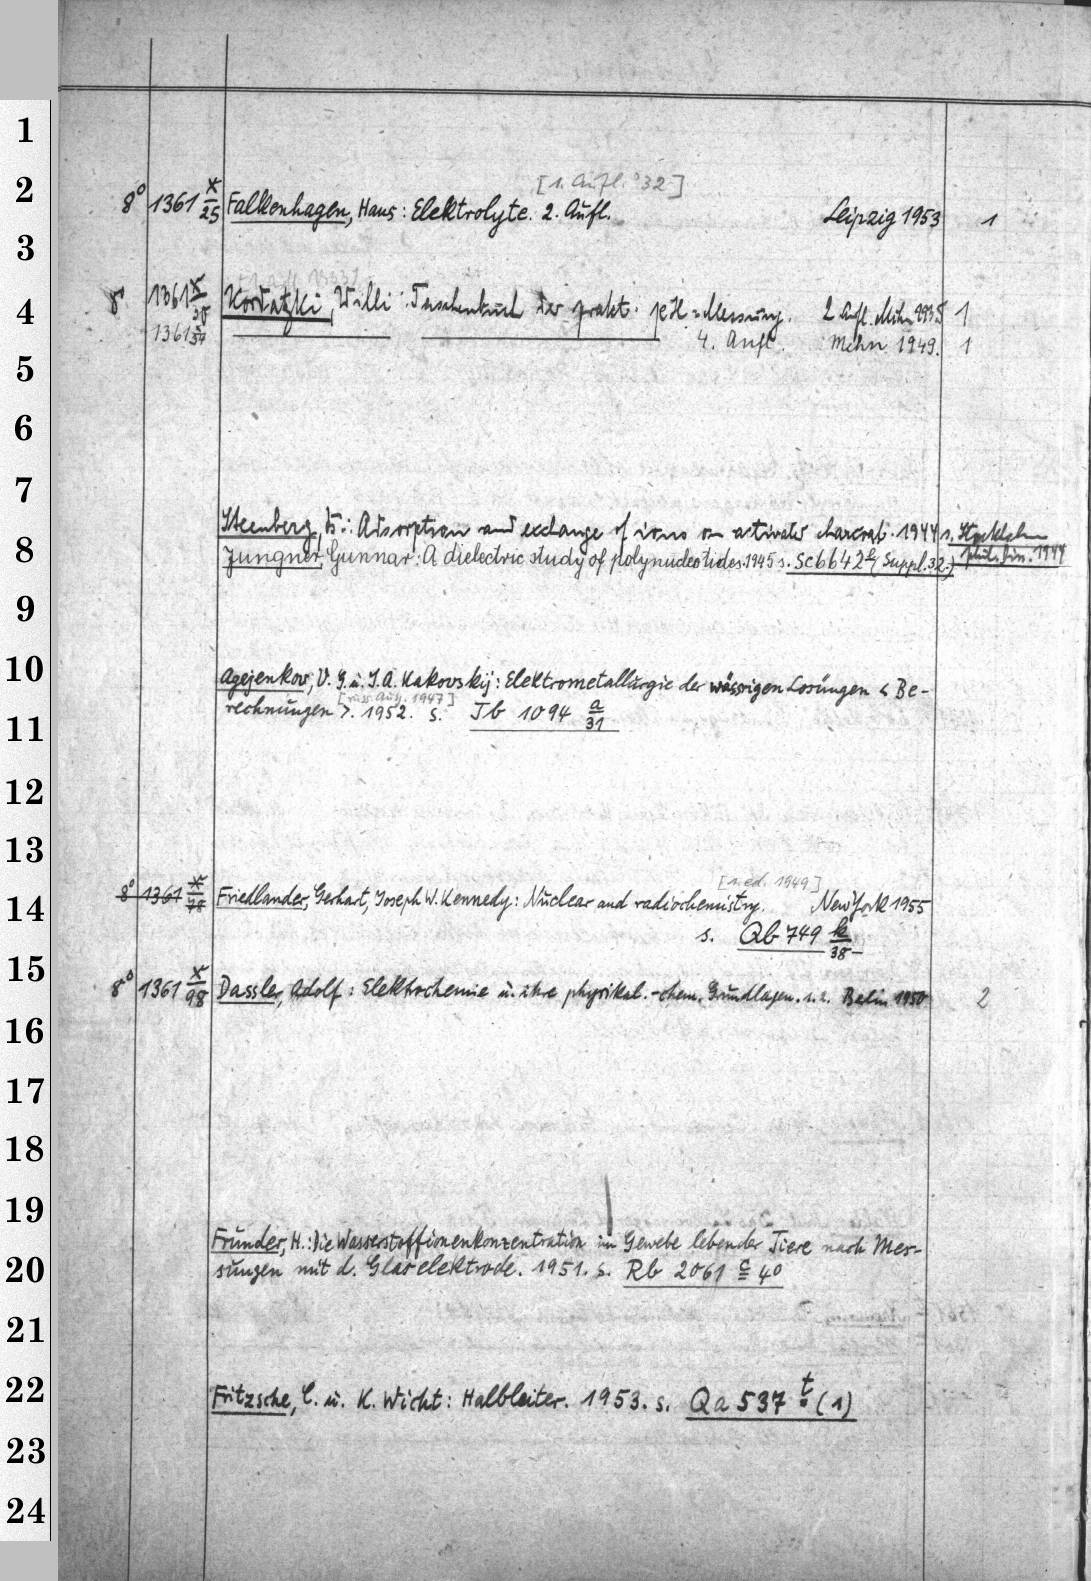 1
2
[1. Aufl. '32-]
8° 1361 x/25 Falkenhagen, Hans: Elektrolyte. 2. Aufl. Leipzig 1953 1
3
8° 1361 x/30 Kordatzki, Willi: Taschenbuch der prakt. pH-Messung. 2 Aufl. Mchn 1935 1
4
1361 x/34 4. Aufl. Mchn 1949. 1
5
6
7
Steenberg, B.: Adsorption and exchange of ions on activated charcoal. 1944 s. Stockholm
8
phil. Diss. 1944
Jungner, Gunnar: A dielectric study of polynucleotides. 1945 s. Sc 6642 e (Suppl. 32.)
9
10
Agejenkov, V. G. u. J. A. Kakovskij: Elektrometallurgie der wässrigen Lösungen < Be-
[russ. Aufl. 1947]
rechnungen >. 1952. s. Jb 1094 a/31
11
12
13
[1. ed. 1949]
8° 1361 x/78 Friedlander, Gerhart, Joseph W. Kennedy: Nuclear and radiochemistry. New York 1955
14
s. Qb 749 k/38
15
8° 1361 x/98 Dassler, Adolf: Elektrochemie u. ihre physikal.-chem. Grundlagen. 1. 2. Berlin 1950 2
16
17
18
19
Fründer, H.: Die Wasserstoffionenkonzentration im Gewebe lebender Tiere nach Mes-
20
sungen mit d. Glaselektrode. 1951. s. Rb 2061 c 40
21
22
Fritzsche, C. u. K. Wicht: Halbleiter. 1953. s. Qa 537 t (1)
23
24